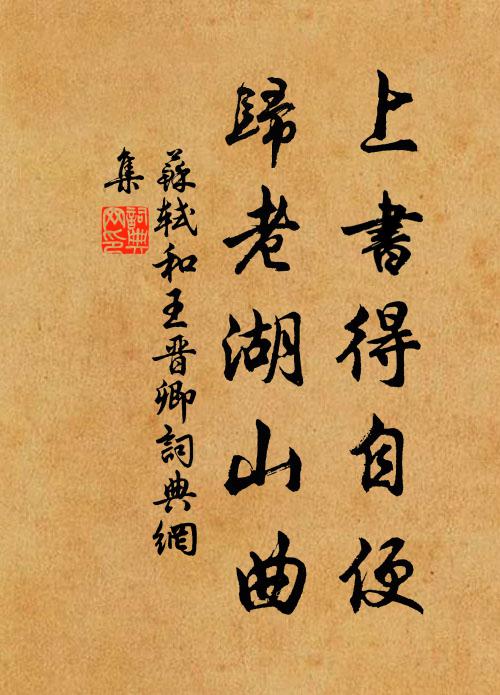 上書得自便
歸老湖山曲
蘇軾和王晉卿詞典網
集
詞典網印